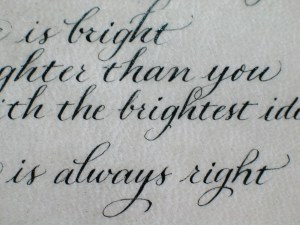 is bright
ghter than you
th the brightest
is always right